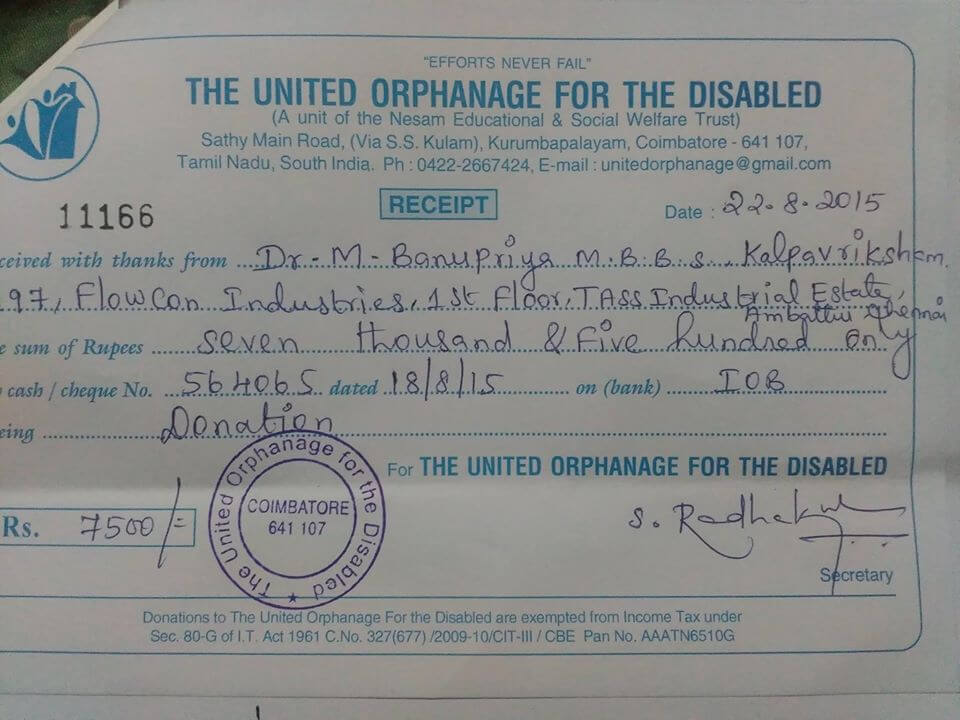 "EFFORTS NEVER FAIL"
THE UNITED ORPHANAGE FOR THE DISABLED
(A unit of the Nesam Educational & Social Welfare Trust)
Sathy Main Road, (Via S.S. Kulam), Kurumbapalayam, Coimbatore - 641 107,
Tamil Nadu, South India. Ph : 0422-2667424, E-mail : unitedorphanage@gmail.com
11166 RECEIPT Date : 22.8.2015
ceived with thanks from Dr. M. Banupriya M.B.B.S., Kalpavriksham.
97, Flowcon Industries, 1st Floor, TASS Industrial Estate,
Ambattur Chennai
e sum of Rupees seven thousand & Five hundred only
cash / cheque No. 564065 dated 18/8/15 on (bank) IOB
eing Donation
For THE UNITED ORPHANAGE FOR THE DISABLED
The United Orphanage for the Disabled
COIMBATORE
641 107
Rs. 7500/=
S. Radhak
Secretary
Donations to The United Orphanage For the Disabled are exempted from Income Tax under
Sec. 80-G of I.T. Act 1961 C.No. 327(677) /2009-10/CIT-III / CBE Pan No. AAATN6510G